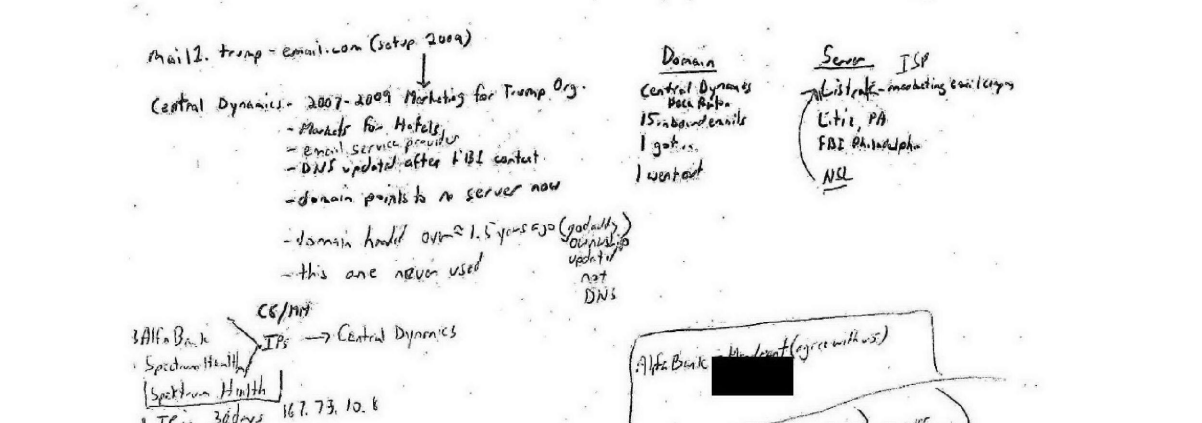 mail1.trump-email.com (setup 2009)
Central Dynamics - 2007-2009 Marketing for Trump Org.
- Markets for Hotels
- email service provider
- DNS updated after FBI contact
- domain points to no server now
- domain handed over ≈ 1.5 years ago (godaddy)
ownership
updated
not
DNS
- this one never used
Domain
Central Dynamics
Boca Raton
15 inbound emails
1 got
1 went out
Server ISP
Listrak - marketing email
Lititz, PA
FBI Philadelphia
NSL
3 Alfa Bank
Spectrum Health
Spektrum Health
IPs → Central Dynamics
30 days 167.73.10.8
Alfa Bank - Mandiant (agree with us)